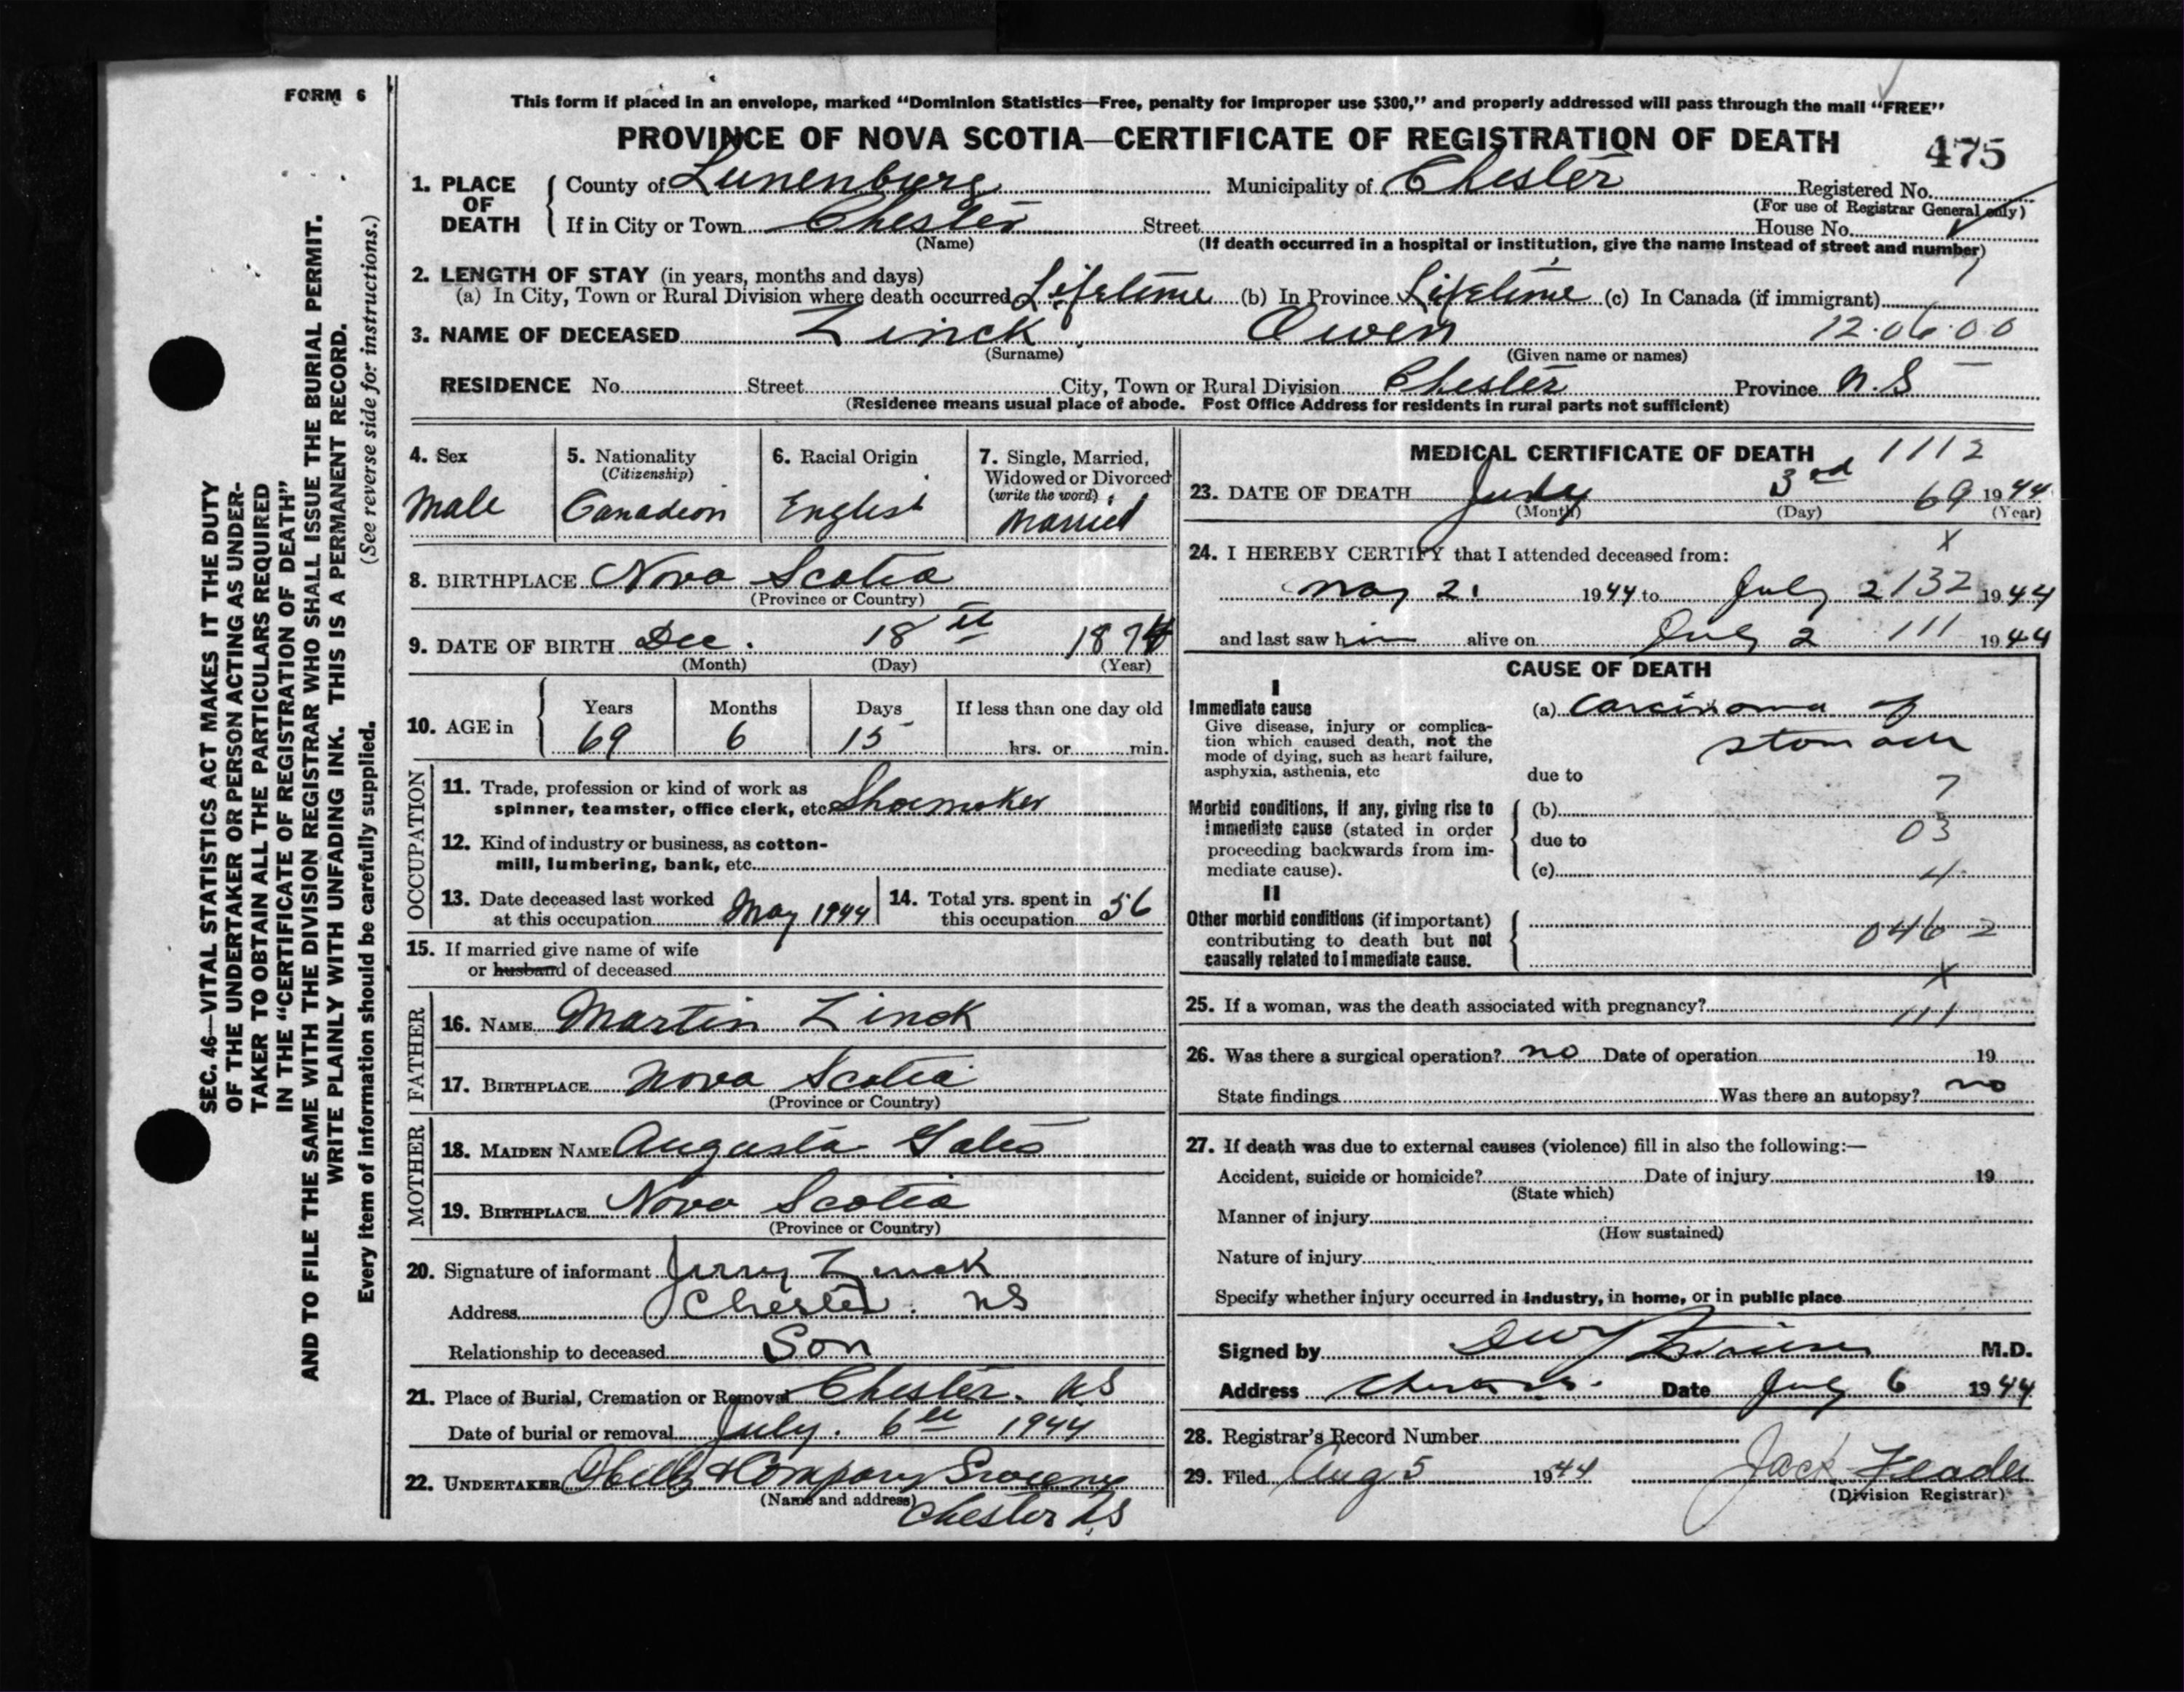 FORM 6
This form if placed in an envelope, marked "Dominion Statistics—Free, penalty for improper use $300," and properly addressed will pass through the mail "FREE"
PROVINCE OF NOVA SCOTIA—CERTIFICATE OF REGISTRATION OF DEATH
475
1. PLACE OF DEATH County of Lunenburg Municipality of Chester Registered No.
(For use of Registrar General only)
If in City or Town Chester Street House No.
(Name) (If death occurred in a hospital or institution, give the name instead of street and number)
2. LENGTH OF STAY (in years, months and days)
(a) In City, Town or Rural Division where death occurred Lifetime (b) In Province Lifetime (c) In Canada (if immigrant)
3. NAME OF DECEASED Zinck, Owen 12.06.00
(Surname) (Given name or names)
RESIDENCE No. Street City, Town or Rural Division Chester Province N.S
(Residence means usual place of abode. Post Office Address for residents in rural parts not sufficient)
4. Sex
Male
5. Nationality
(Citizenship)
Canadian
6. Racial Origin
English
7. Single, Married, Widowed or Divorced
(write the word)
Married
8. BIRTHPLACE Nova Scotia
(Province or Country)
9. DATE OF BIRTH Dec. 18th 1874
(Month) (Day) (Year)
10. AGE in Years Months Days If less than one day old
69 6 15 hrs. or min.
OCCUPATION
11. Trade, profession or kind of work as
spinner, teamster, office clerk, etc. Shoemaker
12. Kind of industry or business, as cotton-
mill, lumbering, bank, etc.
13. Date deceased last worked
at this occupation May 1944
14. Total yrs. spent in
this occupation 56
15. If married give name of wife
or husband of deceased
FATHER
16. NAME Martin Zinck
17. BIRTHPLACE Nova Scotia
(Province or Country)
MOTHER
18. MAIDEN NAME Augusta
19. BIRTHPLACE Nova Scotia
(Province or Country)
20. Signature of informant Jerry Zinck
Address Chester. NS
Relationship to deceased Son
21. Place of Burial, Cremation or Removal Chester. NS
Date of burial or removal July. 6th 1944
22. UNDERTAKER & Company
(Name and address)
Chester NS
MEDICAL CERTIFICATE OF DEATH 1112
23. DATE OF DEATH July 3rd 69 1944
(Month) (Day) (Year)
x
24. I HEREBY CERTIFY that I attended deceased from:
May 21 1944 to July 2 132 1944
and last saw him alive on July 2 111 1944
CAUSE OF DEATH
I
Immediate cause
Give disease, injury or complica-
tion which caused death, not the
mode of dying, such as heart failure,
asphyxia, asthenia, etc
(a) Carcinoma of
stomach
due to
7
Morbid conditions, if any, giving rise to
immediate cause (stated in order
proceeding backwards from im-
mediate cause).
(b)
03
due to
(c) 4
II
Other morbid conditions (if important)
contributing to death but not
causally related to immediate cause.
046 2
x
25. If a woman, was the death associated with pregnancy? 111
26. Was there a surgical operation? no Date of operation 19
State findings Was there an autopsy? no
27. If death was due to external causes (violence) fill in also the following:—
Accident, suicide or homicide? Date of injury 19
(State which)
Manner of injury
(How sustained)
Nature of injury
Specify whether injury occurred in industry, in home, or in public place
Signed by M.D.
Address Date July 6 1944
28. Registrar's Record Number
29. Filed Aug 5 1944 Jack
(Division Registrar)
SEC. 46—VITAL STATISTICS ACT MAKES IT THE DUTY
OF THE UNDERTAKER OR PERSON ACTING AS UNDER-
TAKER TO OBTAIN ALL THE PARTICULARS REQUIRED
IN THE "CERTIFICATE OF REGISTRATION OF DEATH"
AND TO FILE THE SAME WITH THE DIVISION REGISTRAR WHO SHALL ISSUE THE BURIAL PERMIT.
WRITE PLAINLY WITH UNFADING INK. THIS IS A PERMANENT RECORD.
Every item of information should be carefully supplied. (See reverse side for instructions.)